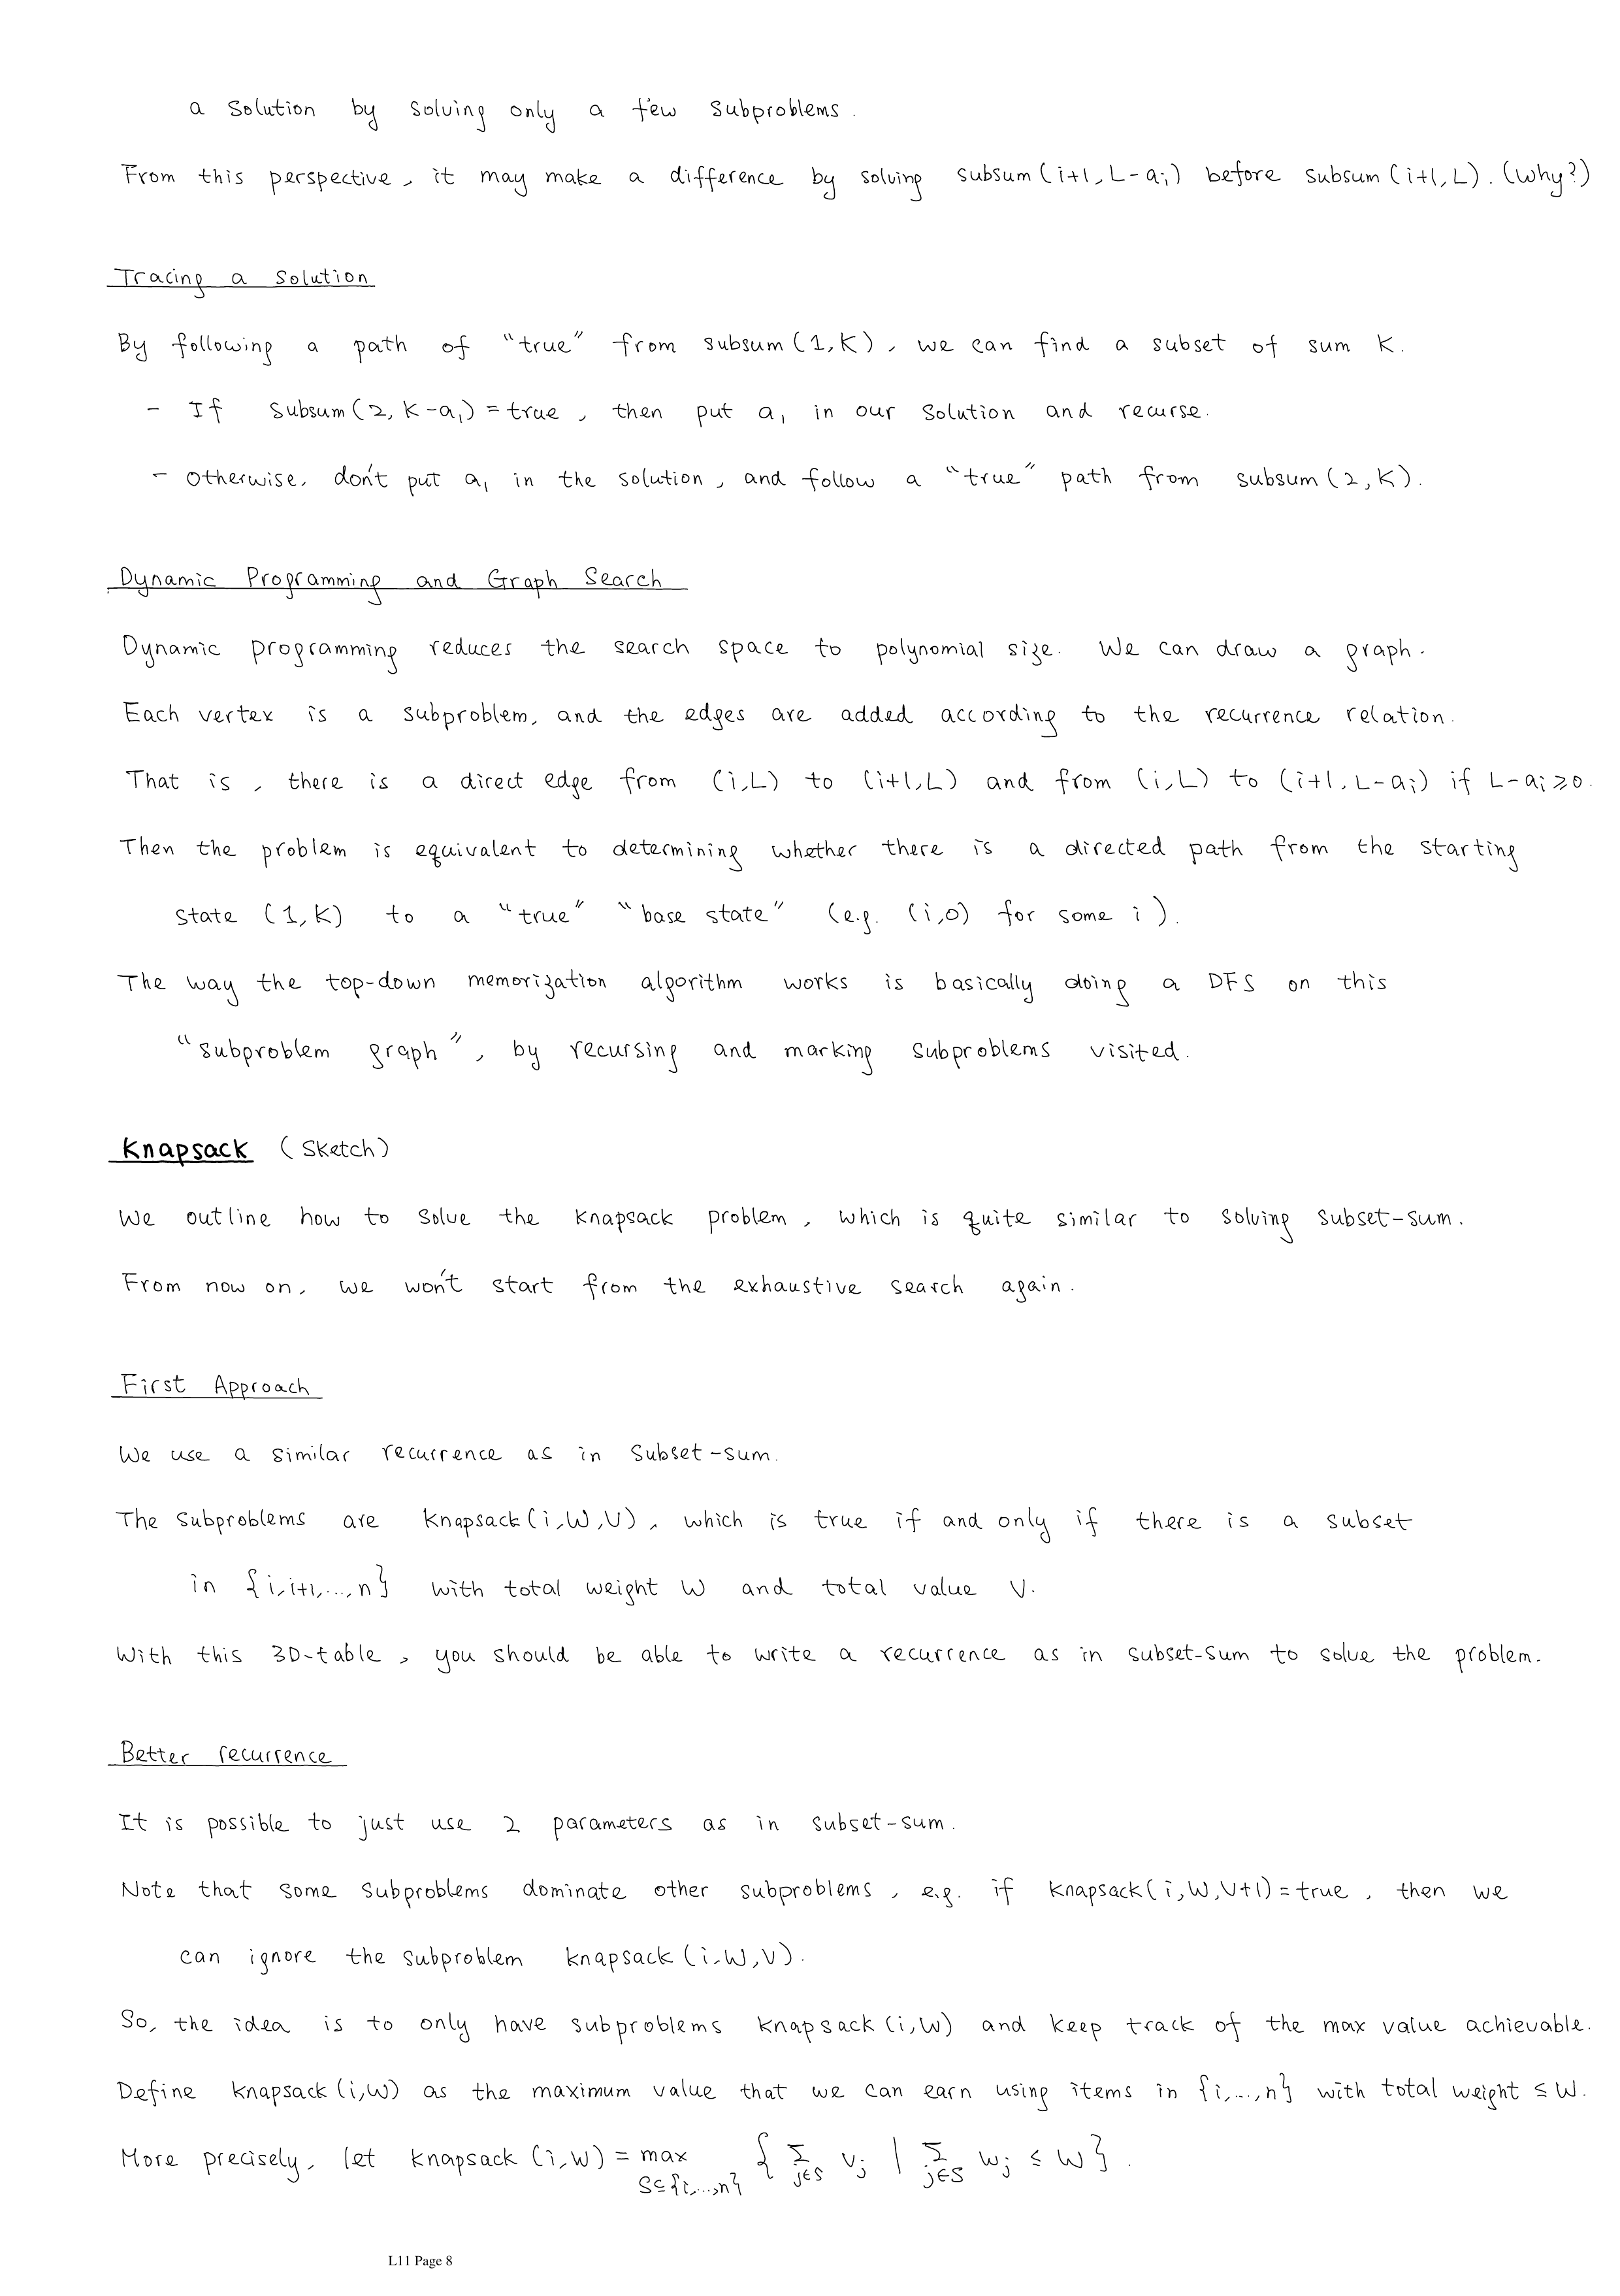 a solution by solving only a few subproblems.
From this perspective, it may make a difference by solving subsum(i+1, L-aᵢ) before subsum(i+1, L). (why?)
Tracing a solution
By following a path of "true" from subsum(1,K), we can find a subset of sum K.
- If subsum(2, K-a₁) = true, then put a₁ in our solution and recurse.
- Otherwise, don't put a₁ in the solution, and follow a "true" path from subsum(2,K).
Dynamic Programming and Graph Search
Dynamic programming reduces the search space to polynomial size. We can draw a graph.
Each vertex is a subproblem, and the edges are added according to the recurrence relation.
That is, there is a direct edge from (i,L) to (i+1,L) and from (i,L) to (i+1, L-aᵢ) if L-aᵢ ≥ 0.
Then the problem is equivalent to determining whether there is a directed path from the starting
state (1,K) to a "true" "base state" (e.g. (i,0) for some i).
The way the top-down memorization algorithm works is basically doing a DFS on this
"subproblem graph", by recursing and marking subproblems visited.
Knapsack (Sketch)
We outline how to solve the knapsack problem, which is quite similar to solving subset-sum.
From now on, we won't start from the exhaustive search again.
First Approach
We use a similar recurrence as in subset-sum.
The subproblems are knapsack(i,W,V), which is true if and only if there is a subset
in {i,i+1,...,n} with total weight W and total value V.
With this 3D-table, you should be able to write a recurrence as in subset-sum to solve the problem.
Better recurrence
It is possible to just use 2 parameters as in subset-sum.
Note that some subproblems dominate other subproblems, e.g. if knapsack(i,W,V+1) = true, then we
can ignore the subproblem knapsack(i,W,V).
So, the idea is to only have subproblems knapsack(i,W) and keep track of the max value achievable.
Define knapsack(i,W) as the maximum value that we can earn using items in {i,...,n} with total weight ≤ W.
More precisely, let knapsack(i,W) = max_{S⊆{i,...,n}} { Σ_{j∈S} vⱼ | Σ_{j∈S} wⱼ ≤ W }.
L11 Page 8